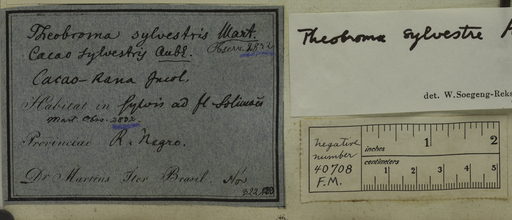 Theobroma sylvestris Mart.
Cacao sylvestris Aubl. Observ. 2832
Cacao-Rana Incol.
Habitat in sylvis ad fl Solimoës
Mart. Obs.
Provinciae R. Negro.
Dr Martius Iter Brasil. Nov
Theobroma sylvestre
det. W.Soegeng-Reks
negative
number
40708
F.M.
inches 1 2
centimeters 1 2 3 4 5